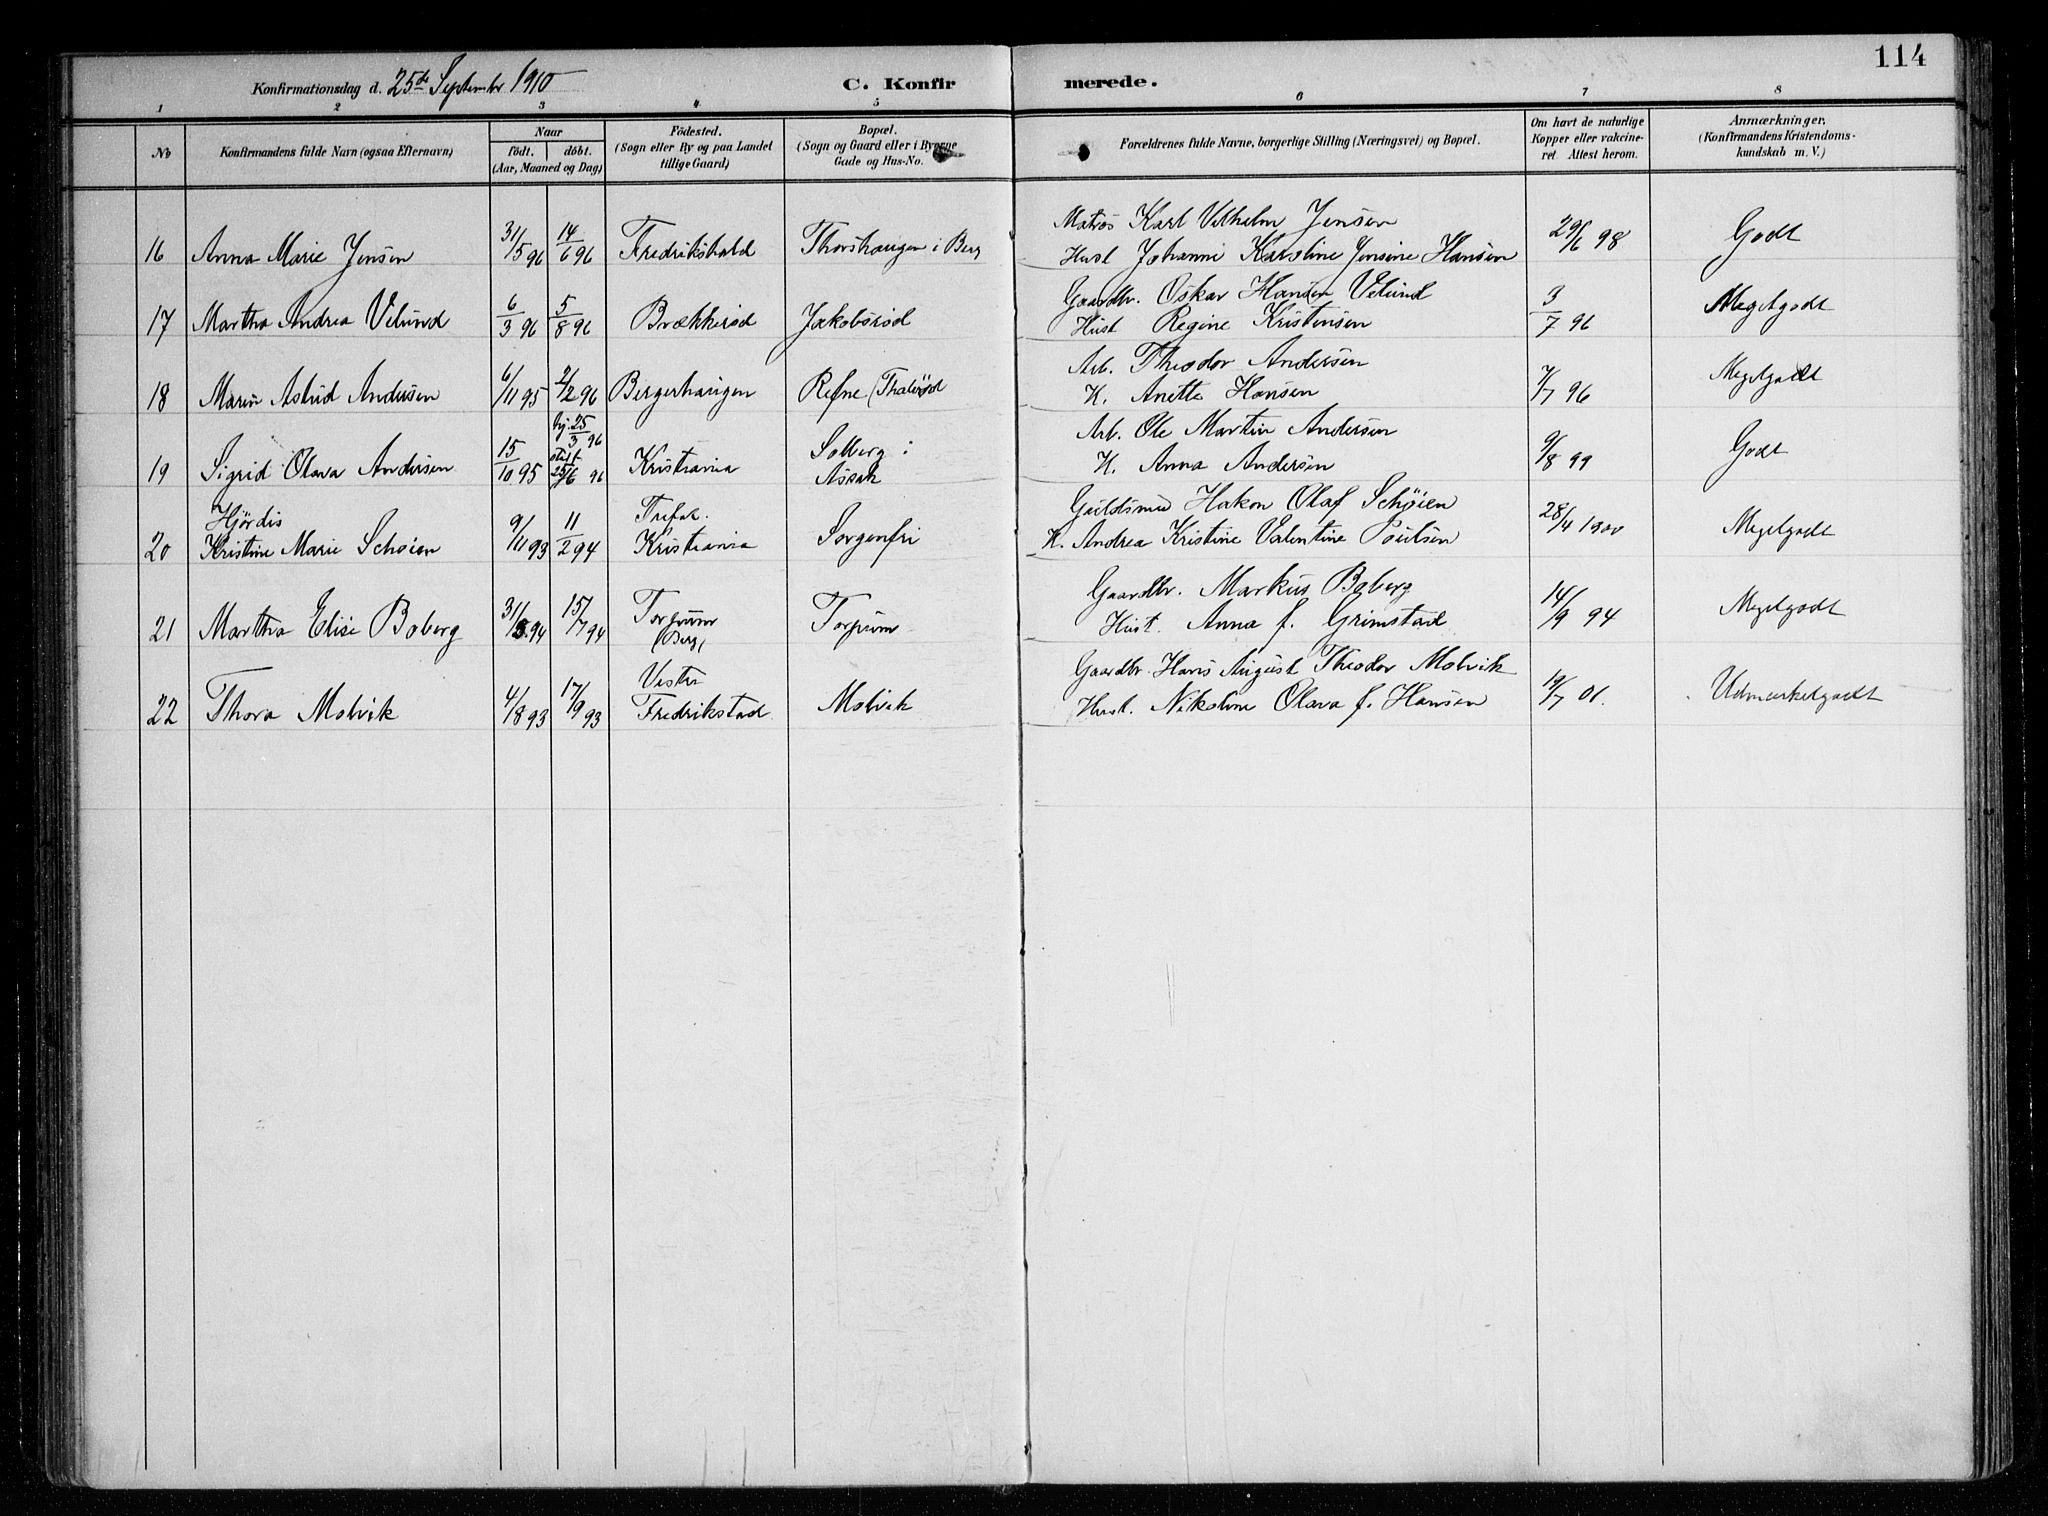 114
Konfirmationsdag d. 25de September 1910
C. Konfirmerede.
1 2 3 4 5 6 7 8
No
Konfirmandens fulde Navn (ogsaa Efternavn)
Naar
födt. döbt.
(Aar, Maaned og Dag)
Födested.
(Sogn eller By og paa Landet
tillige Gaard)
Bopæl.
(Sogn og Gaard eller i Byerne
Gade og Hus-No.
Forældrenes fulde Navne, borgerlige Stilling (Næringsvei) og Bopæl.
Om havt de naturlige
Kopper eller vakcine-
ret Attest herom.
Anmærkninger.
(Konfirmandens Kristendoms-
kundskab m. V.)
16 Anna Marie Jensen 31/5 96 14/6 96 Fredrikshald Thorshaugen i Berg
Matros Karl Vilhelm Jensen
Hust Johanne Karoline Jensine Hansen
29/6 98 Godt
17 Martha Andrea Velund 6/3 96 5/8 96 Brækkerød Jakobsrød
Gaardbr. Oskar Hansen Velund
Hust Regine Kristensen
3/7 96 Megetgodt
18 Maren Astrid Andersen 6/11 95 2/2 96 Bergerhaugen Refne
Arb. Theodor Andersen
H. Anette Hansen
7/7 96 Megetgodt
19 Sigrid Olava Andersen 15/10 95 hj. 25/3 96
stadf.
25/6 96
Kristiania
Solberg i
Assak
Arb. Ole Martin Andersen
H. Anna Andersen
9/8 99 Godt
20 Hjördis
Kristine Marie Schøien 9/11 93 11/2 94
Trefol.
Kristiania
Sorgenfri
Guldsmed Hakon Olaf Schøien
H. Andrea Kristine Valentine Poulsen
28/4 1900 Megetgodt
21 Martha Elise Boberg 31/5 94 15/7 94
Torpum
(Berg)
Torpum
Gaardbr. Markus Boberg
Hust. Anna f. Grimstad
14/9 94 Megetgodt
22 Thora Molvik 4/8 93 17/9 93
Vestre
Fredrikstad
Molvik
Gaardbr. Hans August Theodor Molvik
Hust. Nikoline Olava f. Hansen
19/7 01. Udmærketgodt